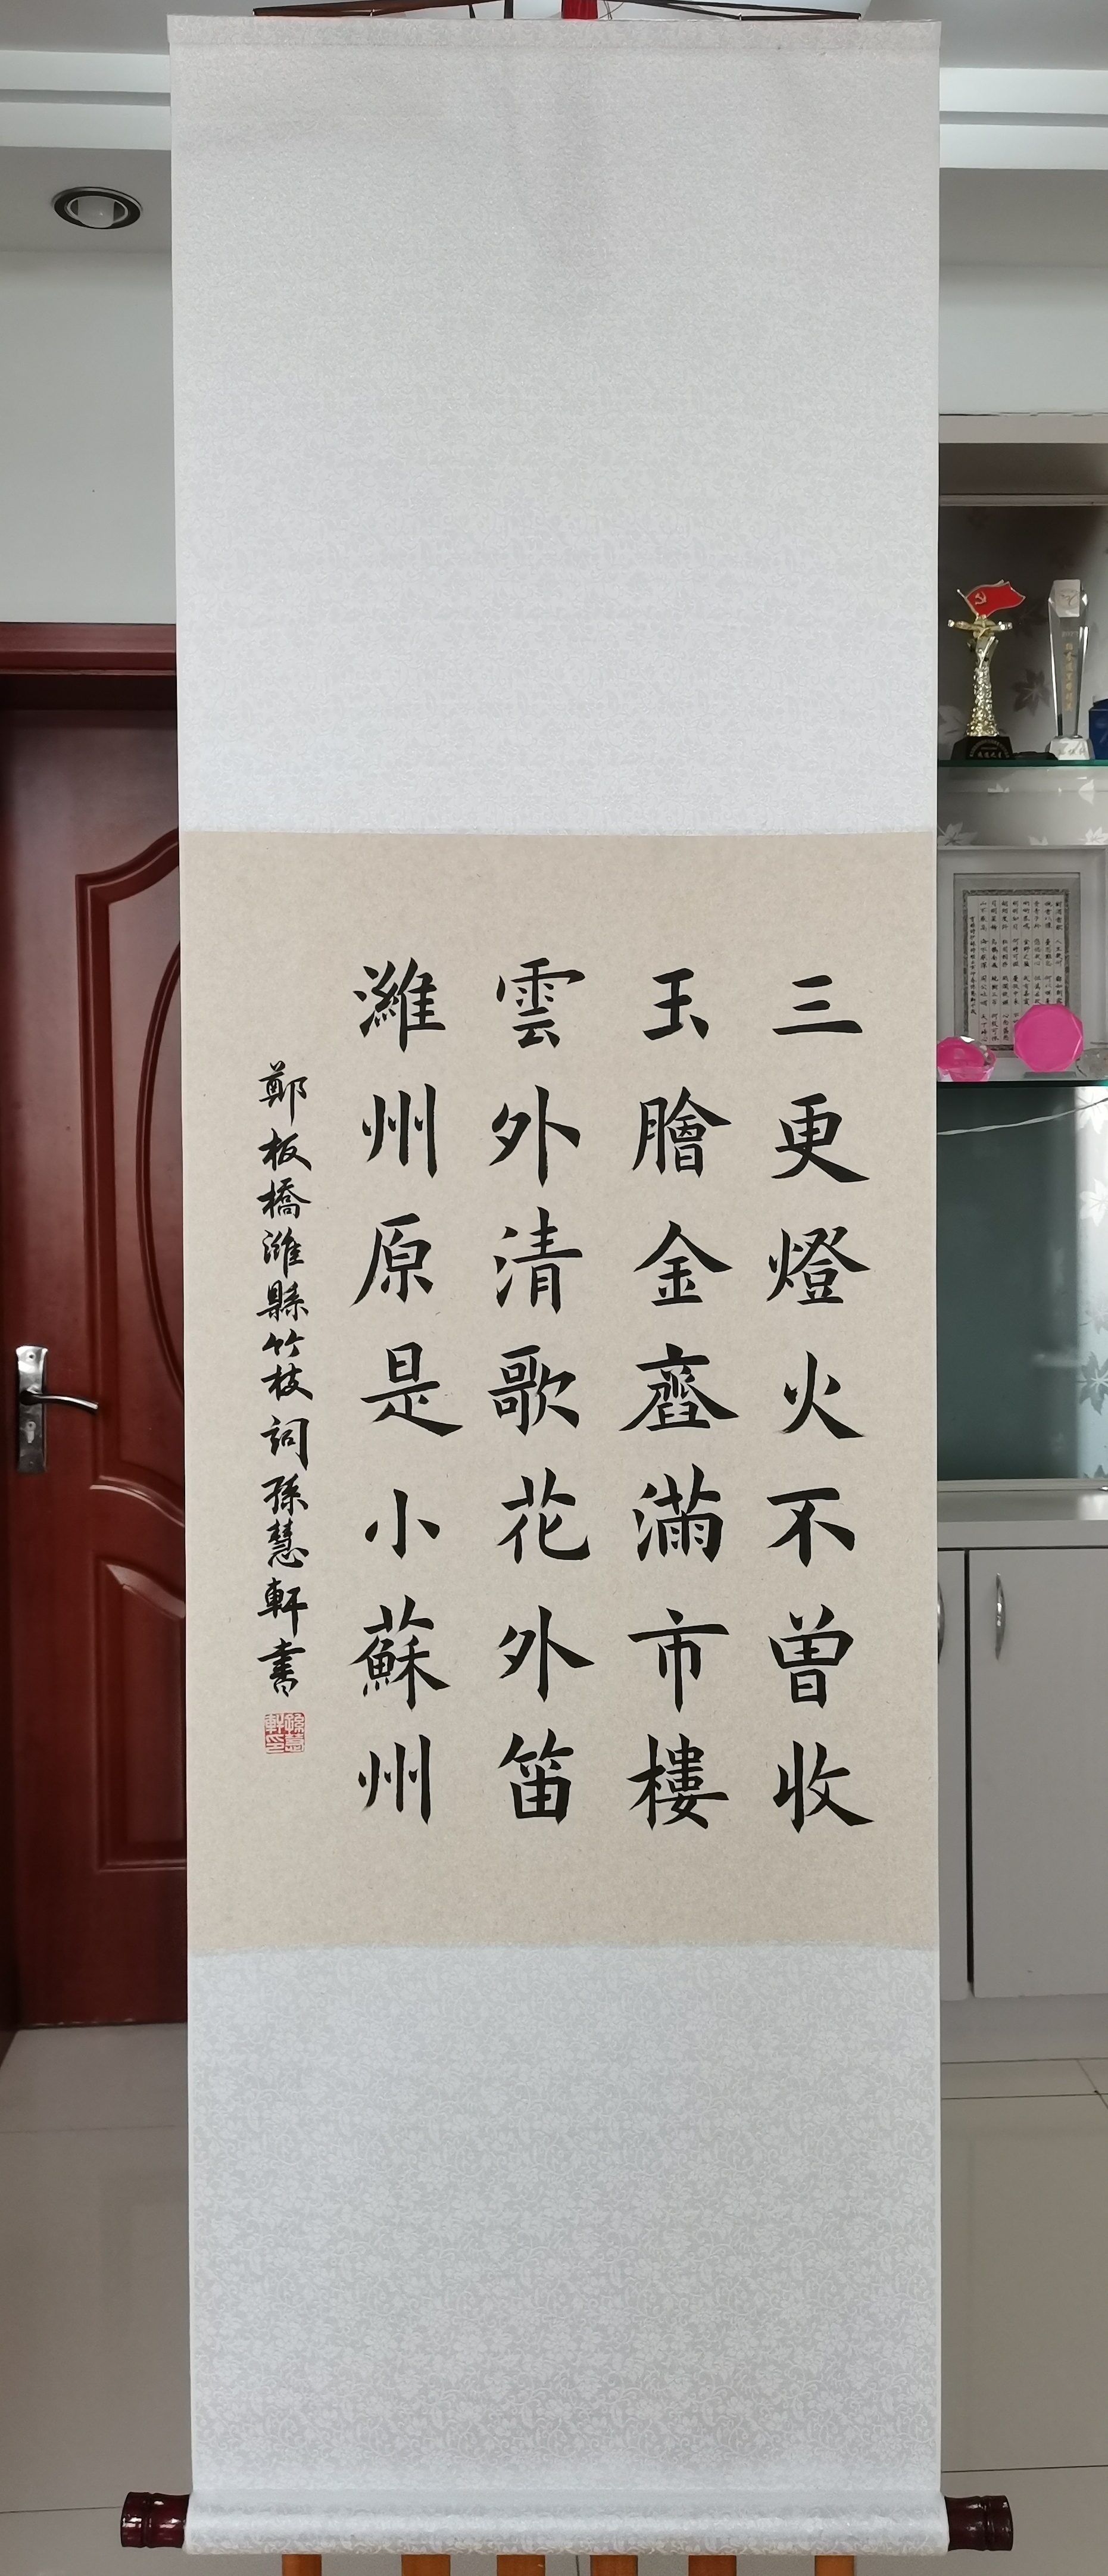 三更燈火不曾收
玉膾金齏滿市樓
雲外清歌花外笛
濰州原是小蘇州
鄭板橋濰縣竹枝詞孫慧軒書
孫慧軒印